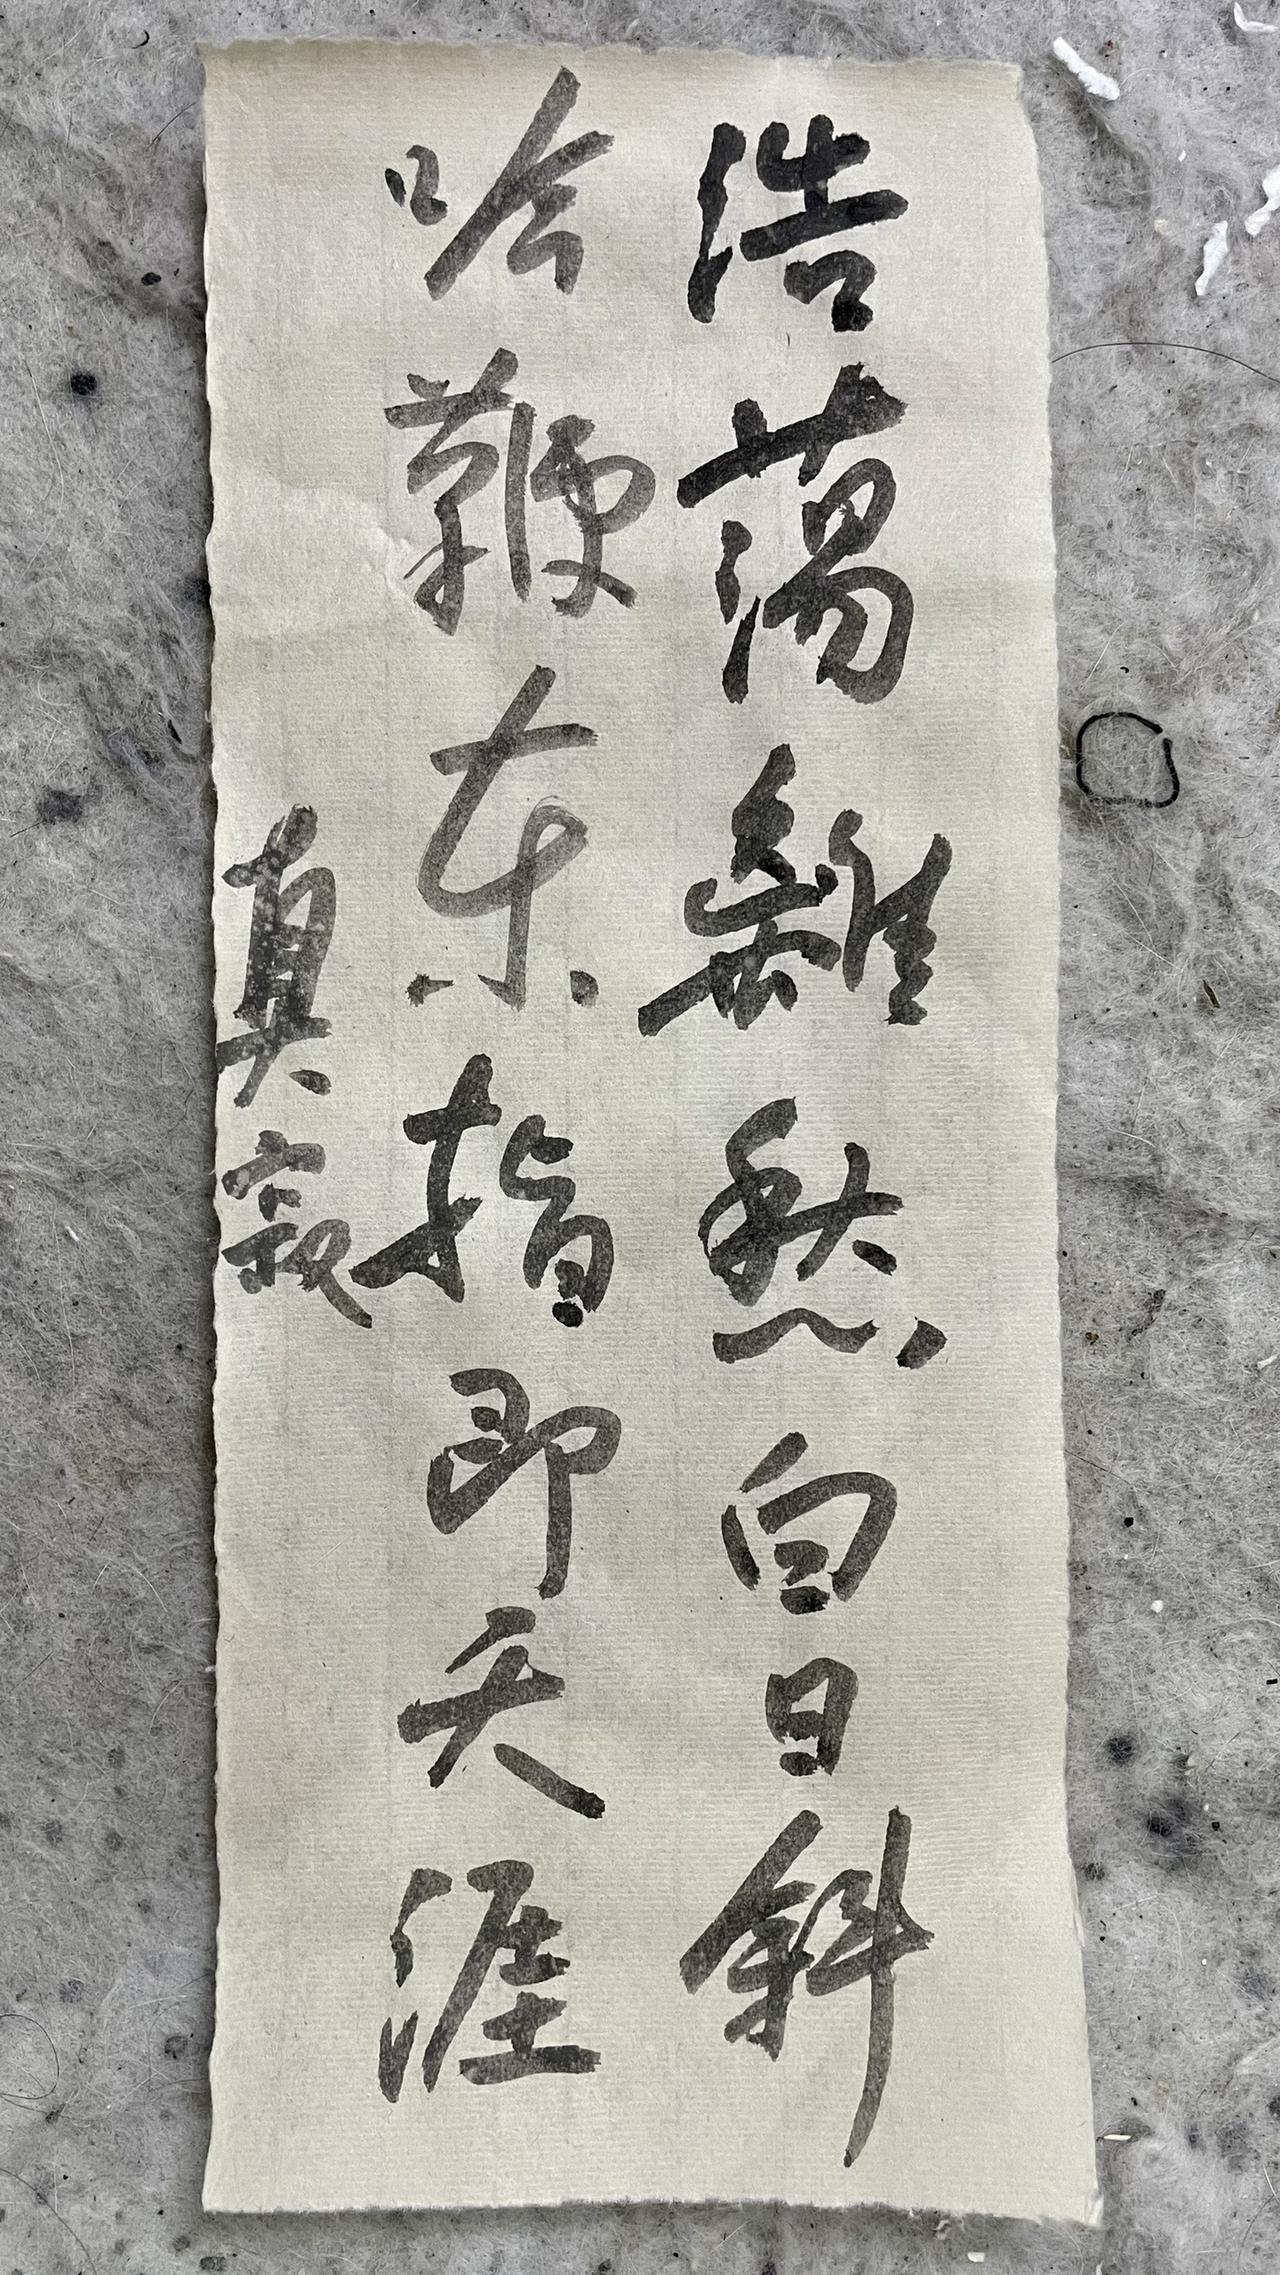 浩蕩離愁白日斜
吟鞭東指即天涯
真寂